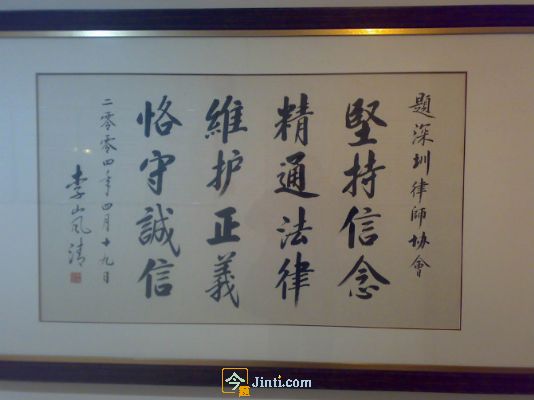 題深圳律师协會
堅持信念
精通法律
維护正義
恪守誠信
二零零四年四月十九日
李岚清
今题
Jinti.com